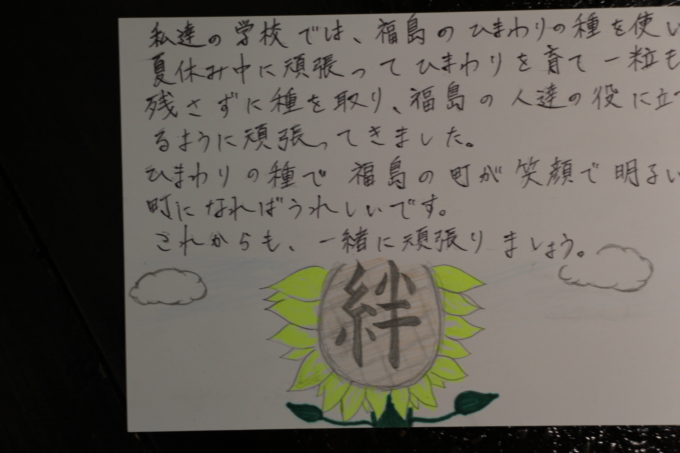 私達の学校では、福島のひまわりの種を使い
夏休み中に頑張ってひまわりを育て一粒も
残さずに種を取り、福島の人達の役に立て
るように頑張ってきました。
ひまわりの種で福島の町が笑顔で明るい
町になればうれしいです。
これからも、一緒に頑張りましょう。
絆